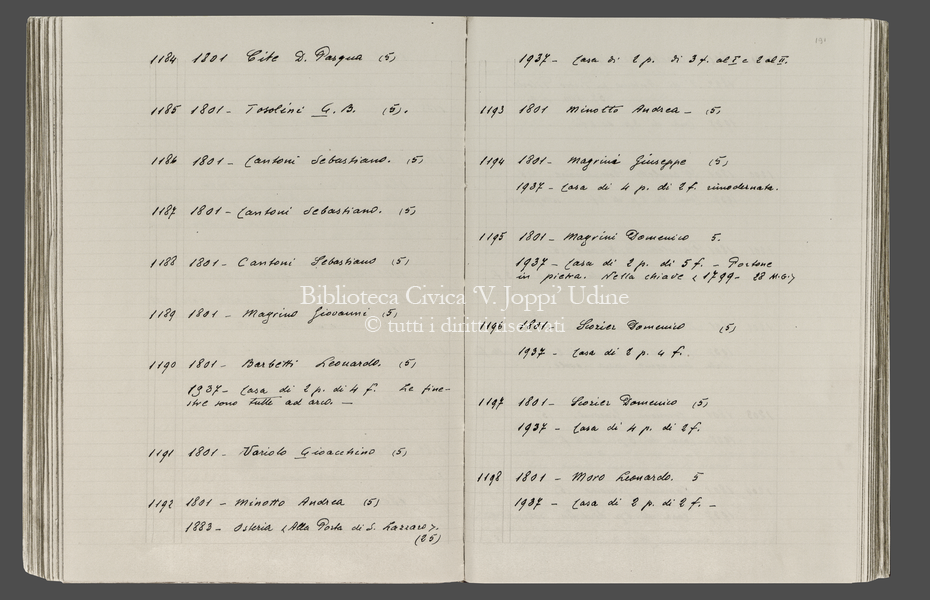 1184 1801 Cite D. Pasqua (5)
1185 1801 - Tosolini G. B. (5).
1186 1801 - Cantoni Sebastiano. (5)
1187 1801 - Cantoni Sebastiano. (5)
1188 1801 - Cantoni Sebastiano (5)
1189 1801 - Magrino Giovanni (5)
1190 1801 - Barbetti Leonardo. (5)
1937 - Casa di 2 p. di 4 f. Le fine-
stre sono tutte ad arco. -
1191 1801 - Variolo Gioacchino (5)
1192 1801 - Minotto Andrea (5)
1883 - Osteria < Alla Porta di S. Lazzaro >.
(25)
191
1937 - Casa di 2 p. di 3 f. al I e 2 al II.
1193 1801 Minotto Andrea - (5)
1194 1801 - Magrini Giuseppe (5)
1937 - Casa di 4 p. di 2 f. rimodernata.
1195 1801 - Magrini Domenico 5.
1937 - Casa di 2 p. di 5 f. - Portone
in pietra. Nella chiave < 1799 - 28 M.G. >
1196 1801 - Scrier Domenico (5)
1937 - Casa di 2 p. 4 f.
1197 1801 - Scrier Domenico (5)
1937 - Casa di 4 p. di 2 f.
1198 1801 - Moro Leonardo. 5
1937 - Casa di 2 p. di 2 f. -
Biblioteca Civica 'V. Joppi' Udine
© tutti i diritti riservati